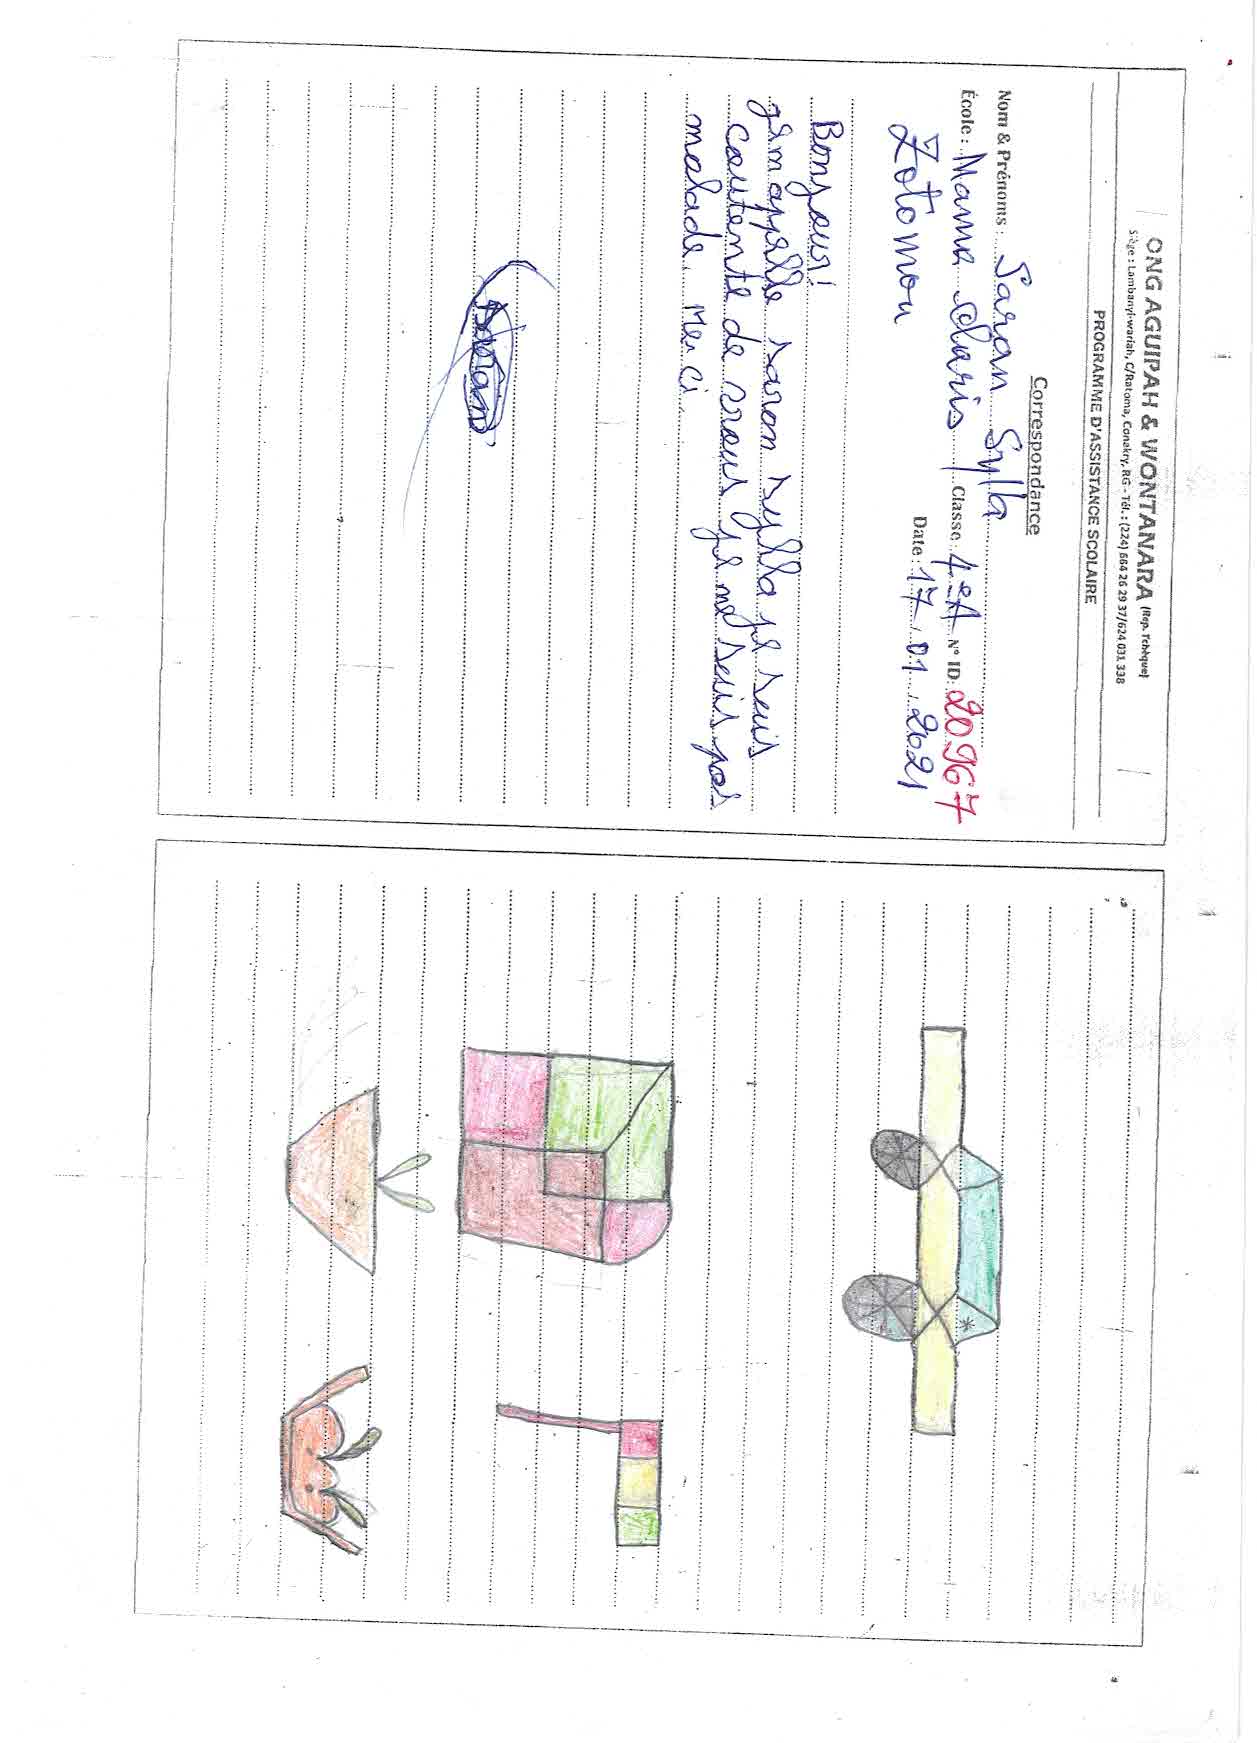 ONG AGUIPAH & WONTANARA (Rep. Tchèque)
Siège : Lambanyi-wariah, C/Ratoma, Conakry, RG - Tél. : (224) 664 26 29 37/624 031 338
PROGRAMME D'ASSISTANCE SCOLAIRE
Correspondance
Nom & Prénoms : Saran Sylla
École : Mama charis Classe : 4eA N° ID: 20967
Zotomou Date : 17.01.2021
Bonjour!
jemapelle saran sylla je suis
coutente de vous je me suis pas
malade. Merci
Saran